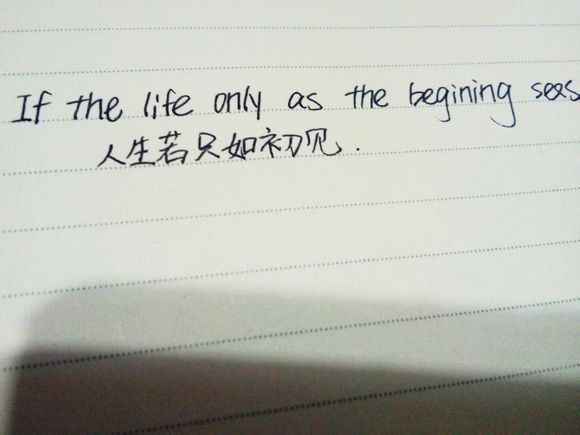 If the life only as the begining seas
人生若只如初见.